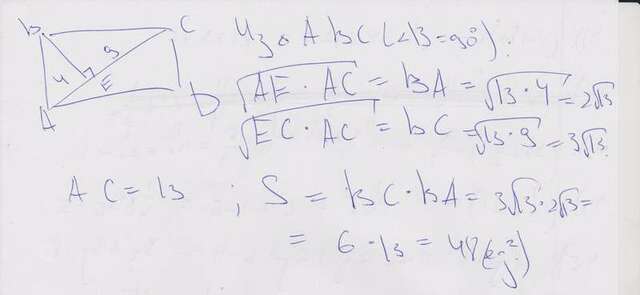 B C
9
4
E
A D
Из △ ABC (∠B=90°):
√AE · AC = BA = √13 · 4 = 2√13
√EC · AC = BC = √13 · 9 = 3√13
AC = 13 ; S = BC · BA = 3√13 · 2√13 =
= 6 · 13 = 48 (ед²)